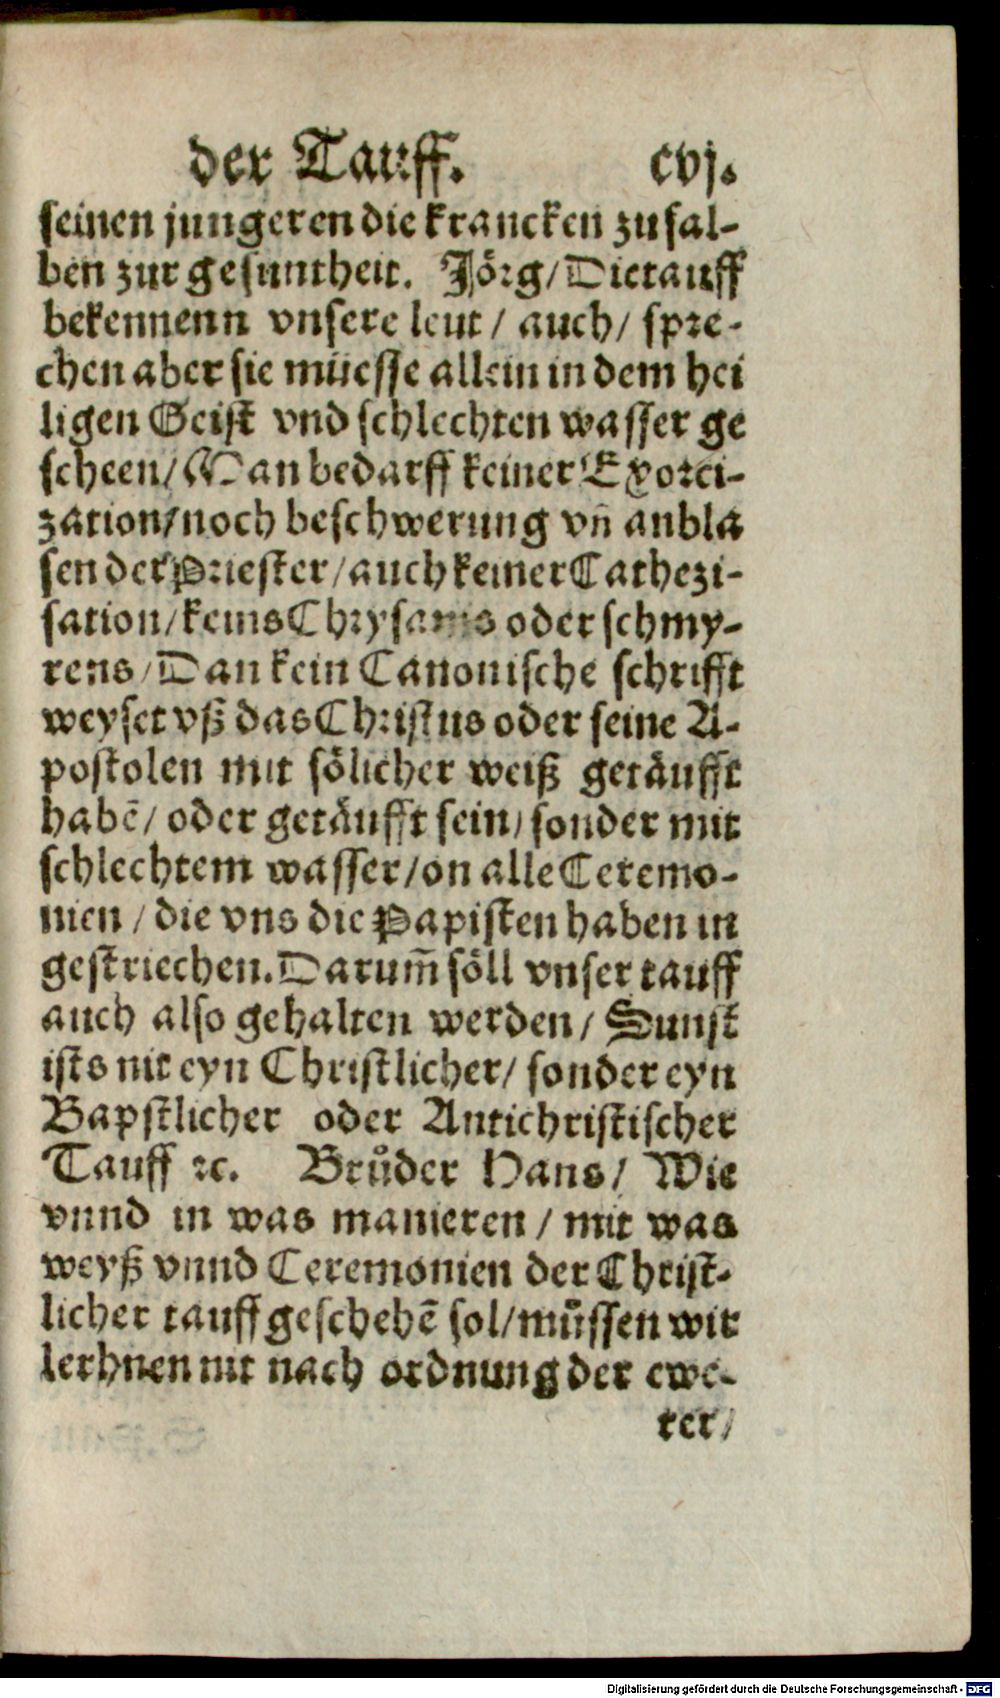 der Tauff. cvj.
seinen jungeren die krancken zu sal-
ben zur gesuntheit. Jörg/ Die tauff
bekennenn vnsere leut / auch / spre-
chen aber sie müesse allein in dem hei
ligen Geist vnd schlechten wasser ge
scheen/ Man bedarff keiner Exorci-
zation/ noch beschwerung vñ anbla
sen der Priester/ auch keiner Cathezi-
sation/ keins Chrysams oder schmy-
rens/ Dan kein Canonische schrifft
weyset vß das Christus oder seine A-
postolen mit sölicher weiß getäufft
habē/ oder getäufft sein/ sonder mit
schlechtem wasser/ on alle Ceremo-
nien / die vns die Papisten haben in
gestriechen. Darum̄ söll vnser tauff
auch also gehalten werden/ Sunst
ists nit eyn Christlicher/ sonder eyn
Bapstlicher oder Antichristischer
Tauff ꝛc. Brůder Hans/ Wie
vnnd in was manieren / mit was
weyß vnnd Ceremonien der Christ-
licher tauff geschehē sol/ můssen wir
lerhnen nit nach ordnung der ewe-
rer/
Digitalisierung gefördert durch die Deutsche Forschungsgemeinschaft - DFG